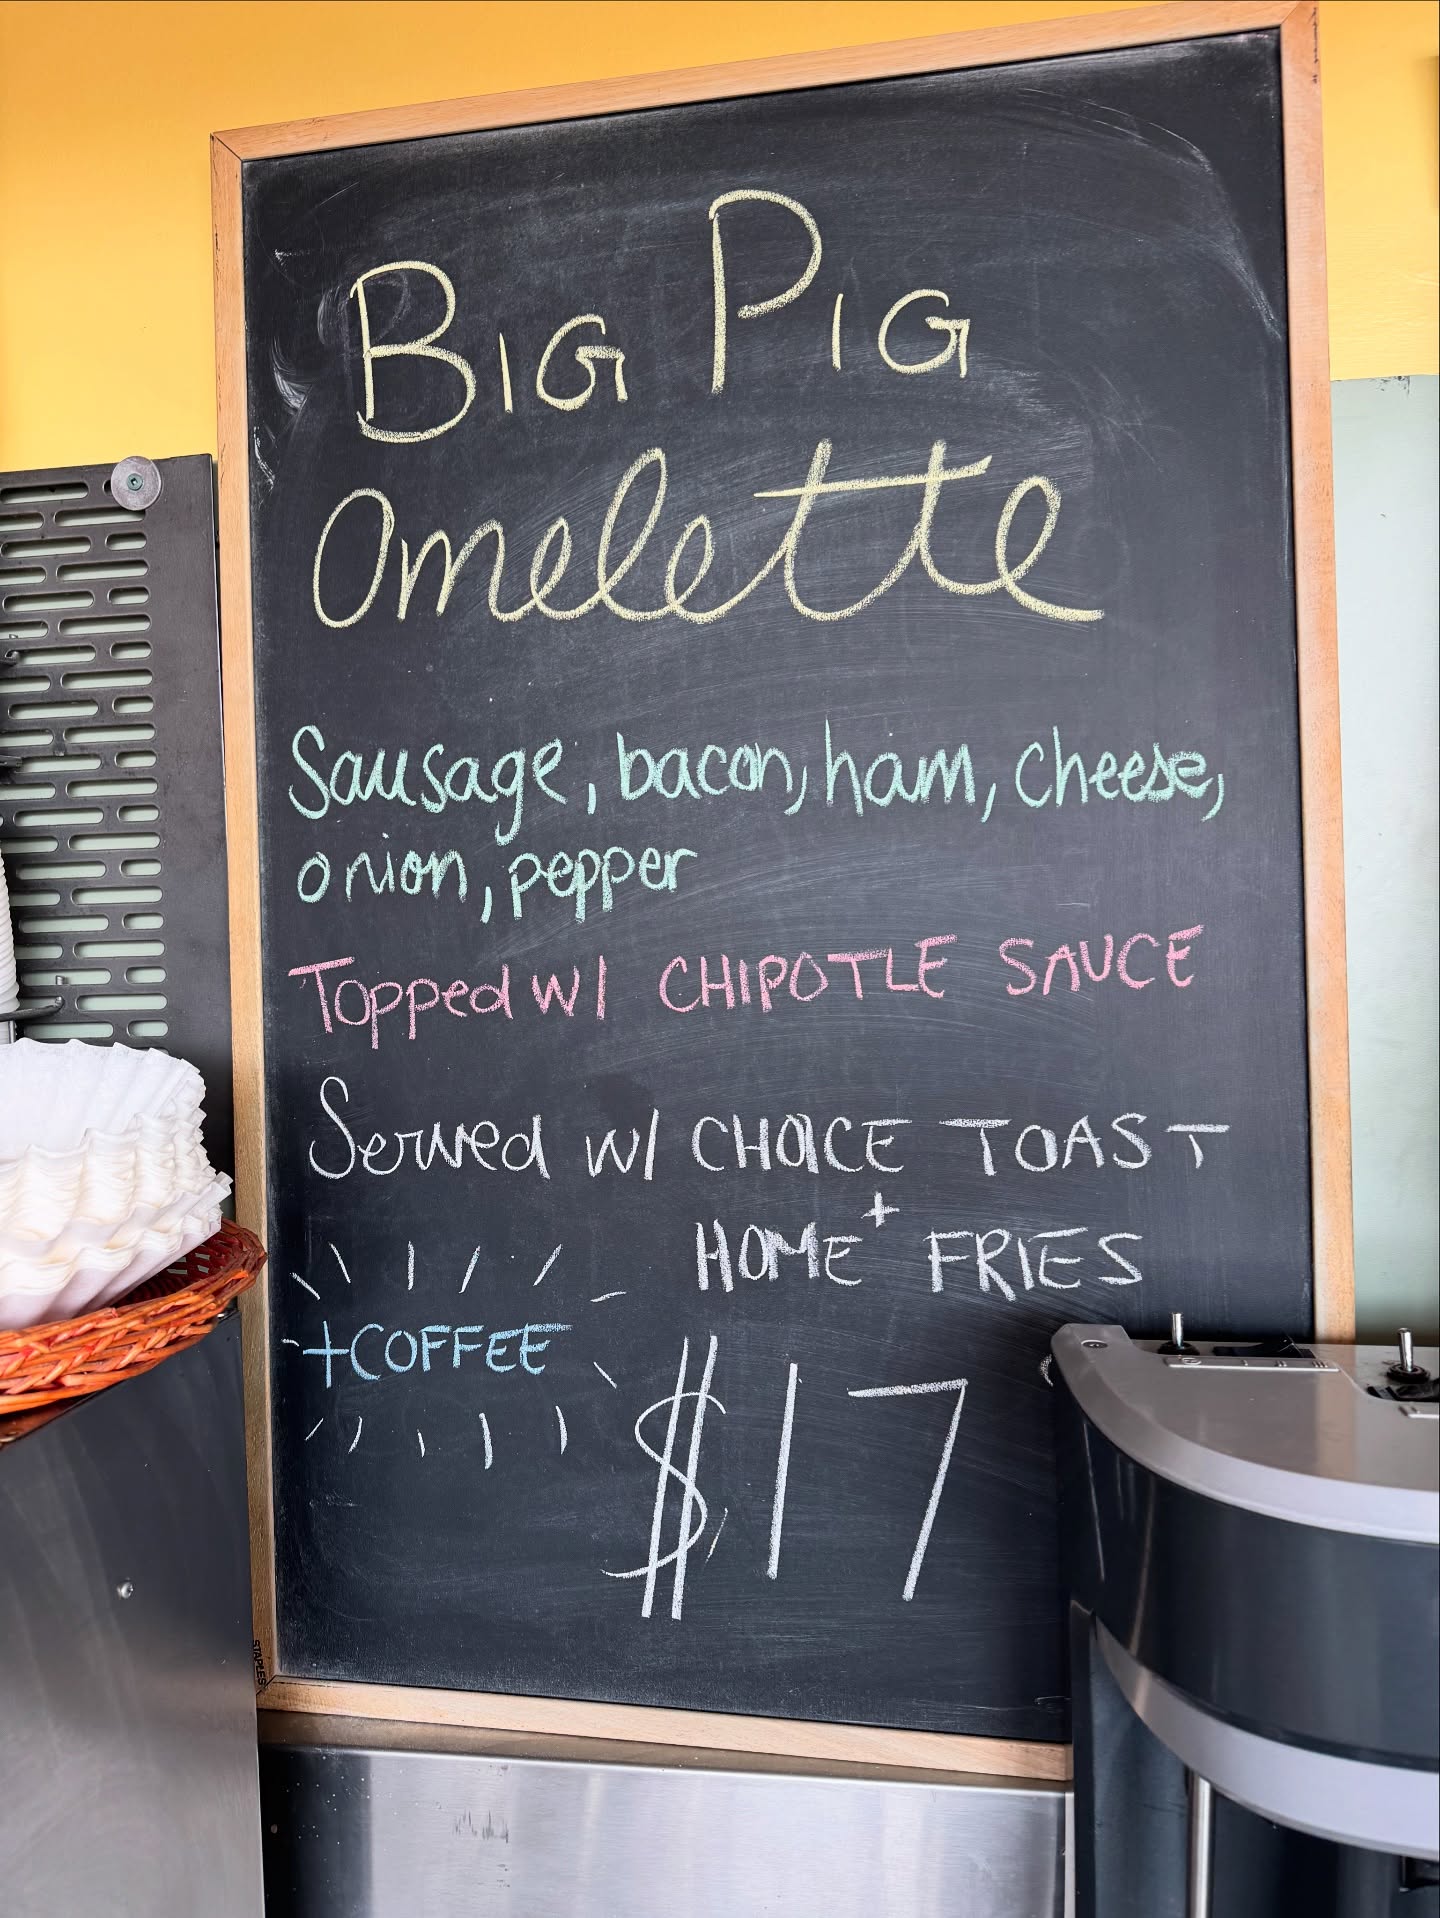 BIG PIG
Omelette
Sausage, bacon, ham, cheese,
onion, pepper
Topped w/ CHIPOTLE SAUCE
Served w/ CHOICE TOAST
+
HOME FRIES
+COFFEE
$17
STAPLES